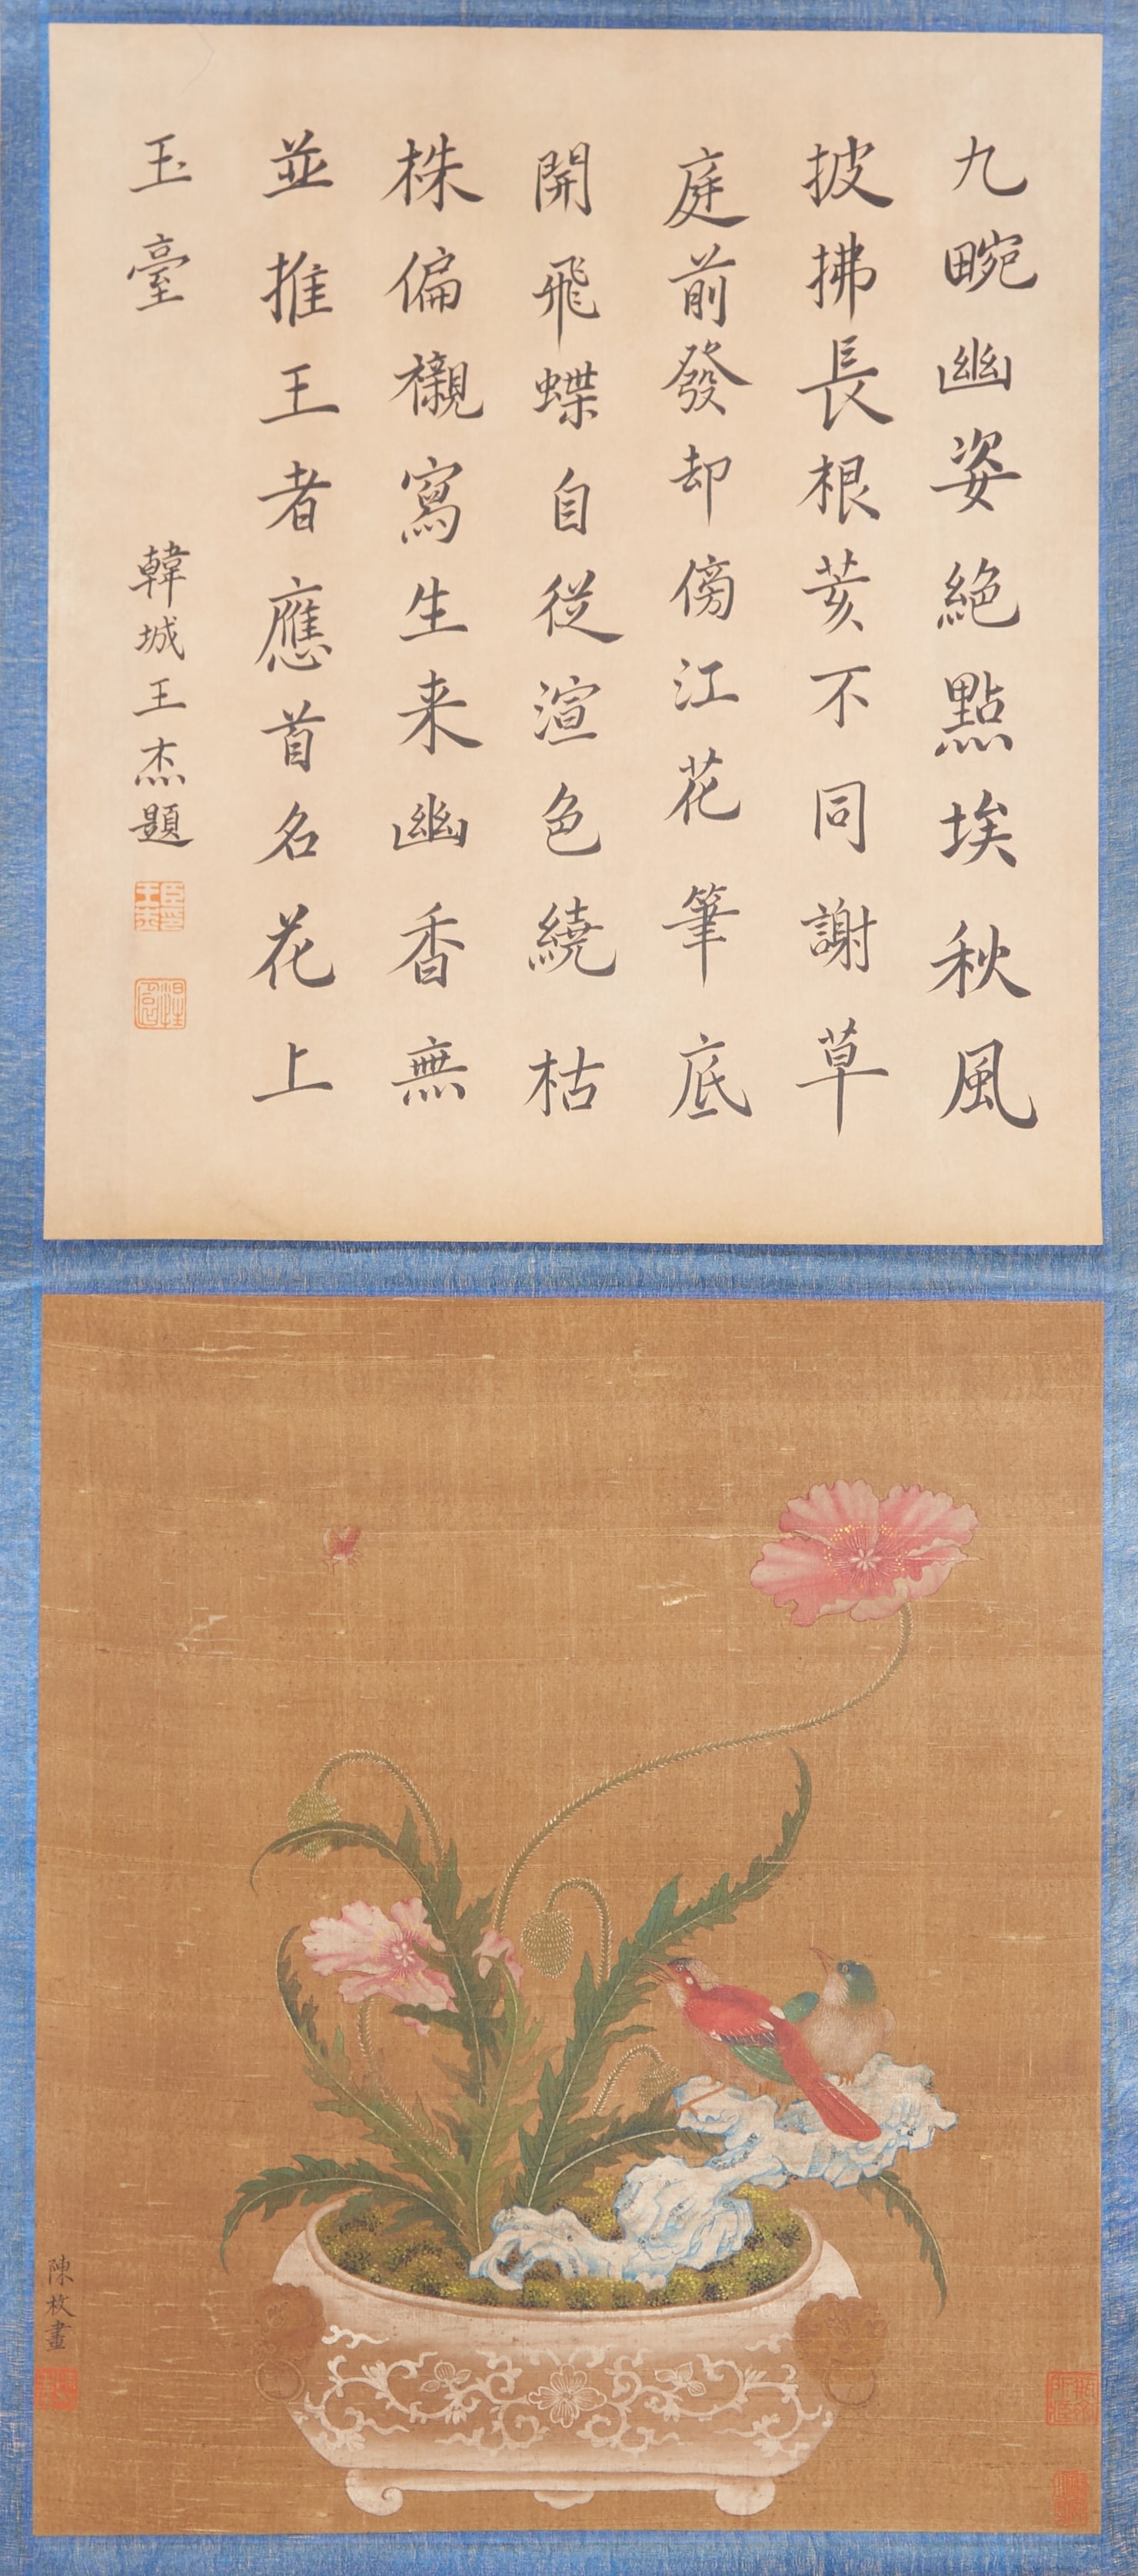 九畹幽姿絶點埃秋風
披拂長根荄不同謝草
庭前發却傍江花筆底
開飛蝶自從渲色繞枯
株偏襯寫生来幽香無
並推王者應首名花上
玉臺
韓城王杰題
陳枚畫